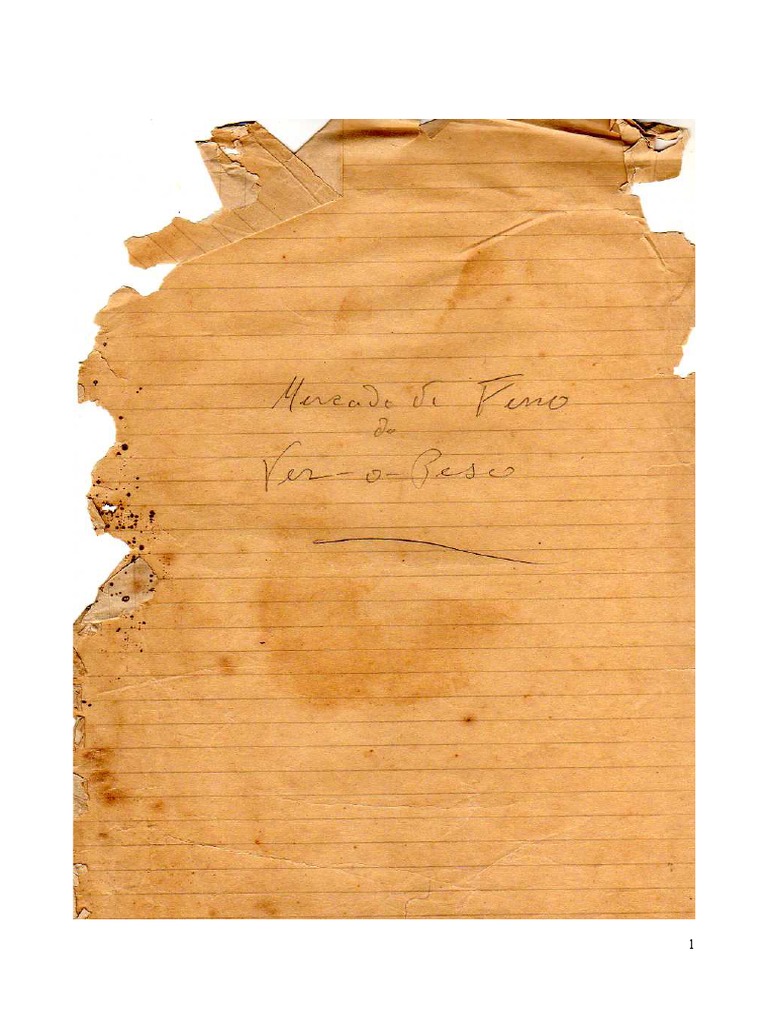 Mercado de Ferro
do
Ver-o-Peso
1